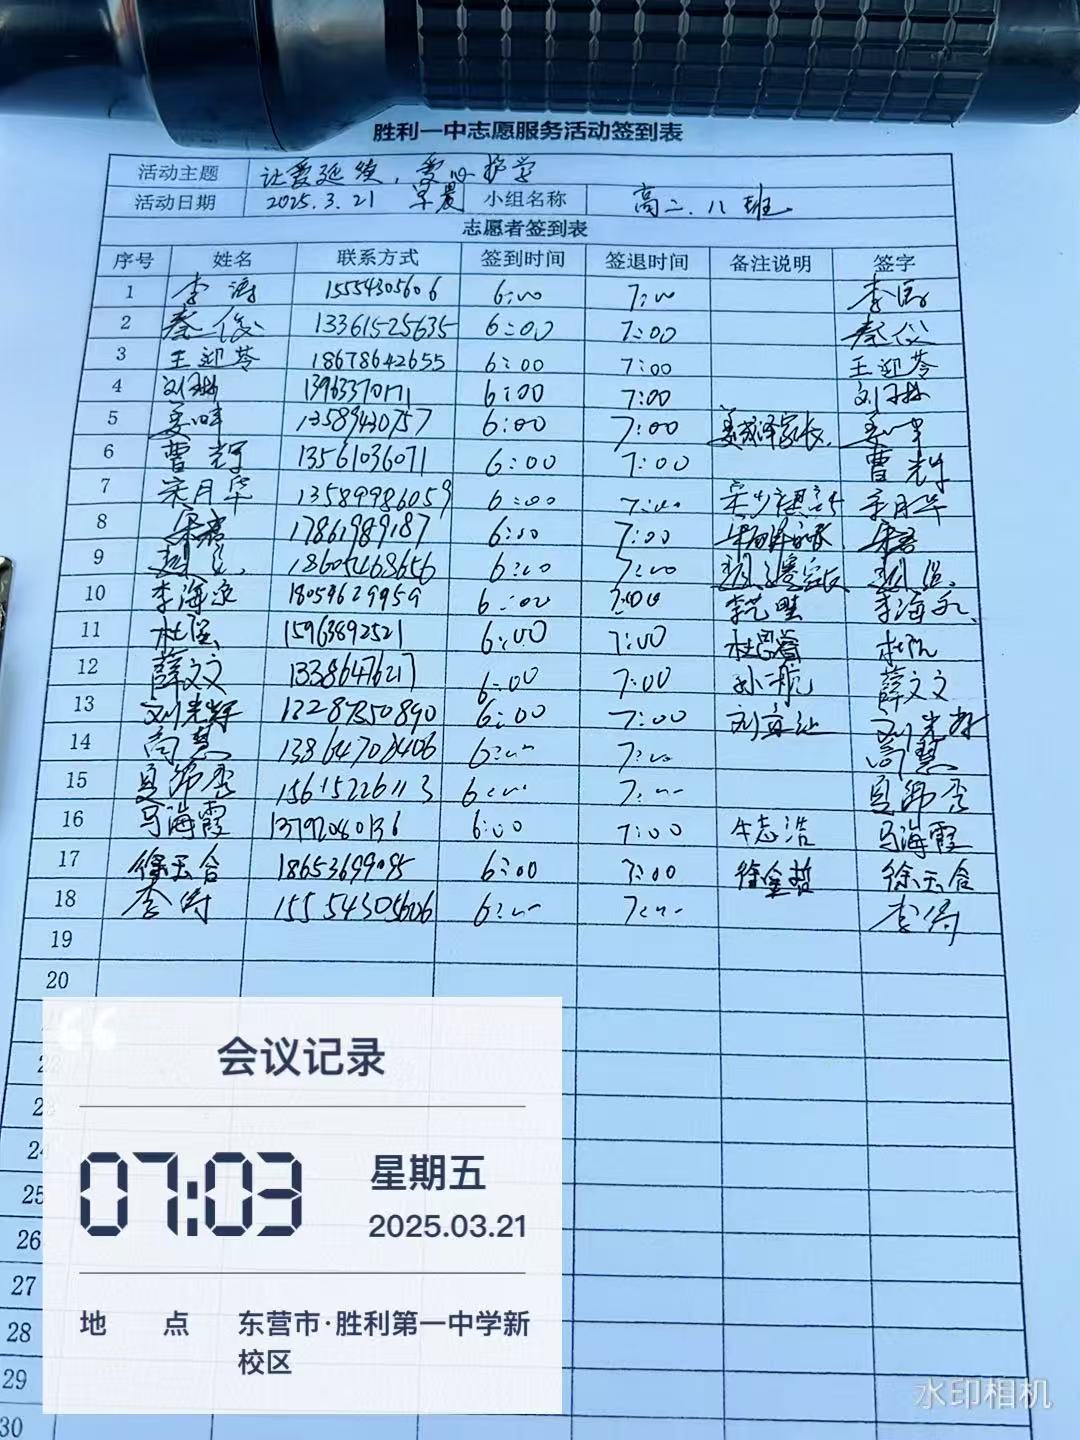 胜利一中志愿服务活动签到表
活动主题 让爱延续，爱心护学
活动日期 2025.3.21 早晨 小组名称 高二.八班
志愿者签到表
序号 姓名 联系方式 签到时间 签退时间 备注说明 签字
1 李涛 15554305606 6:00 7:00 李涛
2 秦俊 13361525635 6:00 7:00 秦俊
3 王迎苓 18678642655 6:00 7:00 王迎苓
4 刘 13963370171 6:00 7:00 刘
5 13589430757 6:00 7:00 家长
6 曹辉 13561036071 6:00 7:00 曹辉
7 宋月华 13589986059 6:00 7:00 宋月华
8 17861989187 6:00 7:00
9 18605468656 6:00 7:00 家长
10 李海泉 18059629959 6:00 7:00 李艺 李海
11 杜 15963892521 6:00 7:00 杜 杜
12 薛文文 13386476217 6:00 7:00 孙一航 薛文文
13 刘光辉 6:00 7:00 刘 刘光辉
14 尚慧 6:00 7:00 尚慧
15 15615226113 6:00 7:00
16 马海霞 13792080136 6:00 7:00 牛志浩 马海霞
17 徐玉合 18653699095 6:00 7:00 徐金哲 徐玉合
18 李涛 15554305606 6:00 7:00 李涛
19
20
24
25
26
27
28
29
30
会议记录
07:03 星期五
2025.03.21
地 点 东营市·胜利第一中学新
校区
水印相机